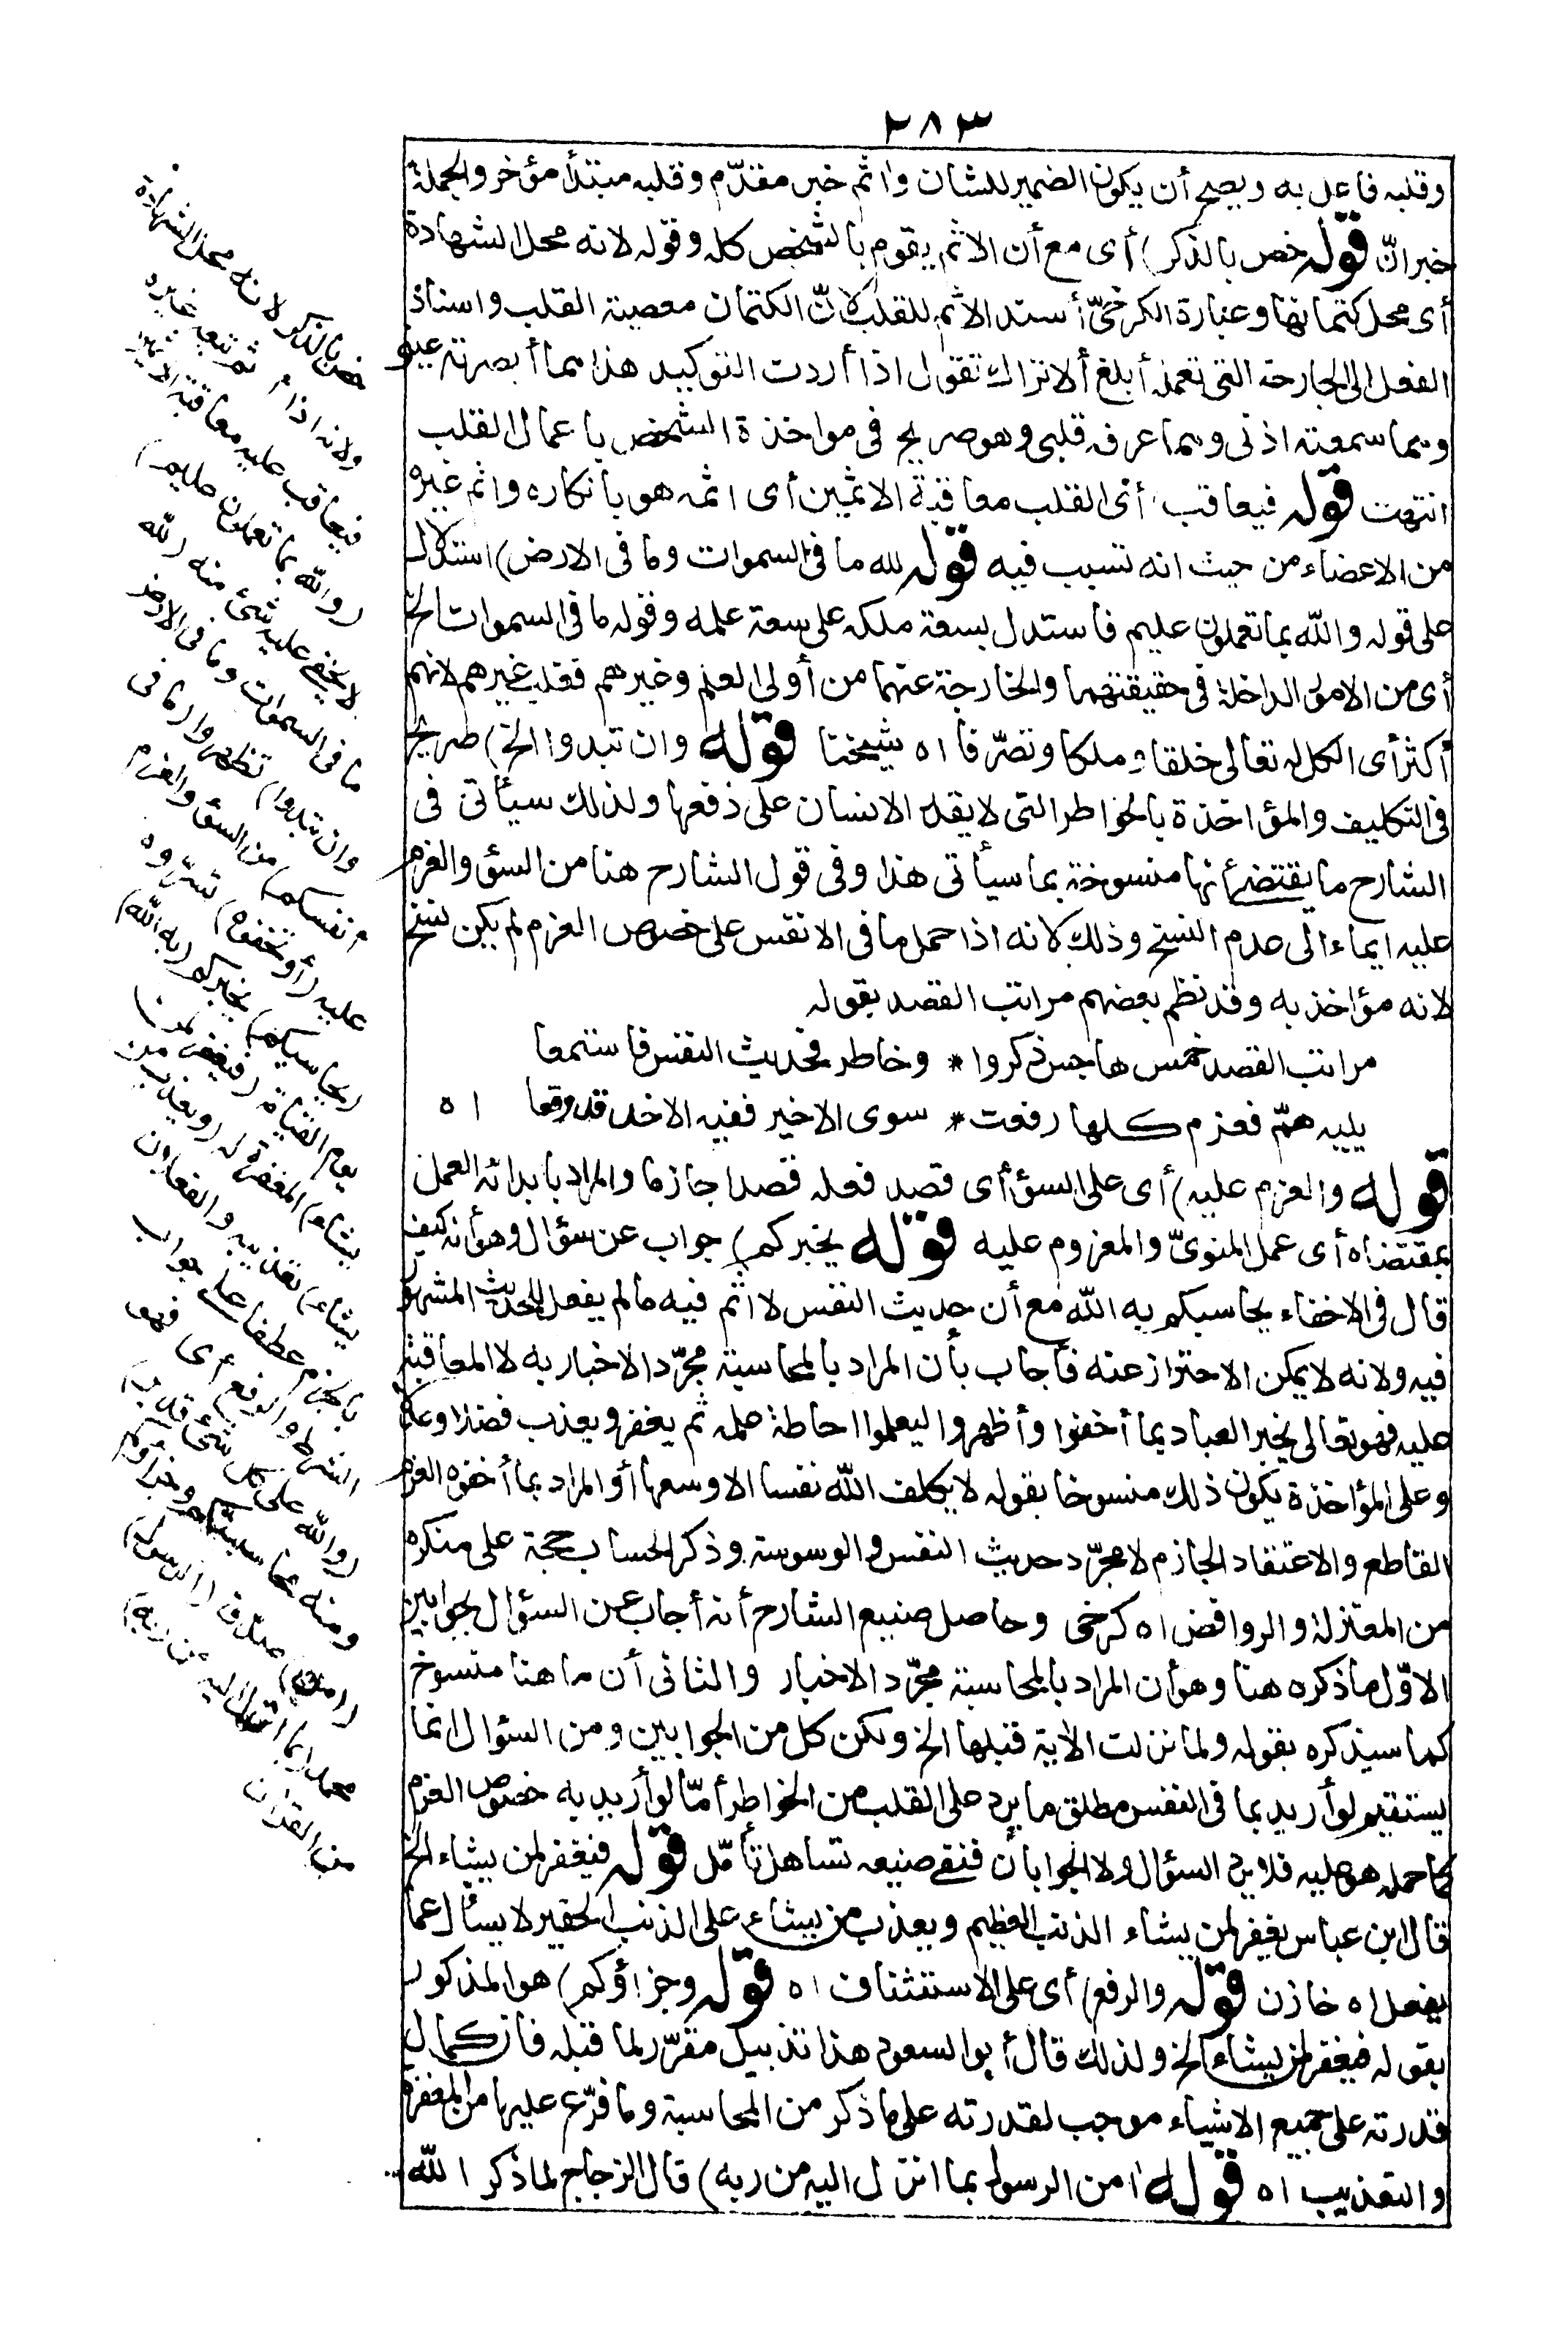 ٢٨٣
وقلبه فاعل به ويصح أن يكون الضمير للشان واثم خبر مقدّم وقلبه مبتدأ مؤخر والجملة
خبر انّ قوله خص بالذكر) أى مع أن الاثم يقوم بالشخص كله وقوله لانه محل الشهادة
أى محل كتمانها وعبارة الكرخىّ أسند الاثم للقلب لانّ الكتمان معصية القلب واسناد
الفعل الى الجارحة التى تعمله أبلغ ألا تراك تقول اذا أردت التوكيد هذا مما أبصرته عينى
ومما سمعته اذنى ومما عرفه قلبى وهو صريح فى مواخذة الشخص باعمال القلب
انتهت قوله فيعاقب أى القلب معاقبة الاثمين أى اثمه هو بانكاره واثم غيره
من الاعضاء من حيث انه تسبب فيه قوله لله ما فى السموات وما فى الارض) استدلال
على قوله والله بما تعملون عليم فاستدل بسعة ملكه على سعة علمه وقوله ما فى السموات الخ
أى من الامور الداخلة فى حقيقتهما والخارجة عنهما من أولى العلم وغيرهم فغلب غيرهم لانهم
أكثر أى الكل له تعالى خلقا وملكا وتصرّفا اه شيخنا قوله وان تبدوا الخ) صريح
فى التكليف والمؤاخذة بالخواطر التى لا يقدر الانسان على دفعها ولذلك سيأتى فى
الشارح ما يقتضى أنها منسوخة بما سيأتى هذا وفى قول الشارح هنا من السؤ والعزم
عليه ايماء الى عدم النسخ وذلك لانه اذا حمل ما فى الانفس على خصوص العزم لم يكن نسخ
لانه مؤاخذ به وقد نظم بعضهم مراتب القصد بقوله
مراتب القصد خمس هاجس ذكروا * وخاطر فحديث النفس فاستمعا
يليه همّ فعزم كلها رفعت * سوى الاخير ففيه الاخذ قد وقعا اه
قوله والعزم عليه) أى على السؤ أى قصد فعله قصدا جازما والمراد بابدائه العمل
بمقتضاه أى عمل المنوىّ والمعزوم عليه قوله يخبركم) جواب عن سؤال وهو أنه كيف
قال فى الاخفاء يحاسبكم به الله مع أن حديث النفس لا اثم فيه ما لم يفعل للحديث المشهور
فيه ولانه لا يمكن الاحتراز عنه فأجاب بأن المراد بالمحاسبة مجرّد الاخبار به لا المعاقبة
عليه فهو تعالى يخبر العباد بما أخفوا وأظهروا ليعلموا احاطة علمه ثم يغفر ويعذب فضلا وعدلا
وعلى المؤاخذة يكون ذلك منسوخا بقوله لا يكلف الله نفسا الا وسعها أو المراد بما أخفوه العزم
القاطع والاعتقاد الجازم لا مجرّد حديث النفس والوسوسة وذكر الحساب حجة على منكره
من المعتزلة والروافض اه كرخى وحاصل صنيع الشارح أنه أجاب عن السؤال بجوابين
الاوّل ما ذكره هنا وهو أن المراد بالمحاسبة مجرّد الاخبار والثانى أن ما هنا منسوخ
كما سيذكره بقوله ولما نزلت الآية قبلها الخ ولكن كل من الجوابين ومن السؤال انما
يستقيم لو أريد بما فى النفس مطلق ما يرد على القلب من الخواطر أمّا لو أريد به خصوص العزم
كما حمله هو عليه فلا يرد السؤال ولا الجوابان ففى صنيعه تساهل تأمّل قوله فيغفر لمن يشاء الخ
قال ابن عباس يغفر لمن يشاء الذنب العظيم ويعذب من يشاء على الذنب الحقير لا يسأل عما
يفعل اه خازن قوله والرفع) أى على الاستئناف اه قوله وجزاؤكم) هو المذكور
بقوله فيغفر لمن يشاء الخ ولذلك قال أبو السعود هذا تذييل مقرّر لما قبله فان كمال
قدرته على جميع الاشياء موجب لقدرته على ما ذكر من المحاسبة وما فرّع عليها من المغفرة
والتعذيب اه قوله امن الرسول بما انزل اليه من ربه) قال الزجاج لما ذكر الله
خص بالذكر لانه محل الشهادة
ولانه اذا اثم تبعه غيره
فيعاقب عليه معاقبة الاثمين
(والله بما تعملون عليم)
لا يخفى عليه شئ منه (لله
ما فى السموات وما فى الارض
وان تبدوا) تظهروا (ما فى
انفسكم) من السؤ والعزم
عليه (أو تخفوه) تسرّوه
(يحاسبكم) يخبركم (به الله)
يوم القيامة (فيغفر لمن
يشاء) المغفرة له (ويعذب من
يشاء) تعذيبه والفعلان
بالجزم عطفا على جواب
الشرط والرفع أى فهو
(والله على كل شئ قدير)
ومنه محاسبتكم وجزاؤكم
(امن) صدّق (الرسول)
محمد (بما انزل اليه من ربه)
من القران